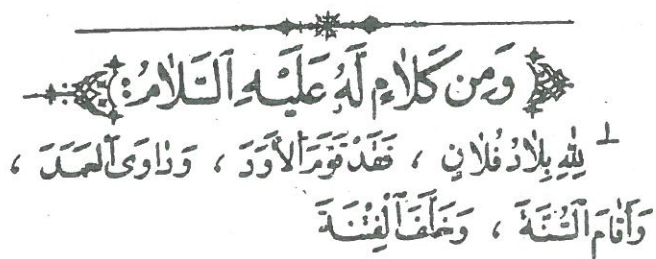 وَمِن كَلاٰمٍ لَهُ عَلَيْهِ ٱلسَّلاٰمُ:
١ لِلّٰهِ بِلاٰدُ فُلاٰنٍ ، فَقَدْ قَوَّمَ ٱلْأَوَدَ ، وَدٰاوَى ٱلْعَمَدَ ،
وَأَقٰامَ ٱلسُّنَّةَ ، وَخَلَّفَ ٱلْفِتْنَةَ